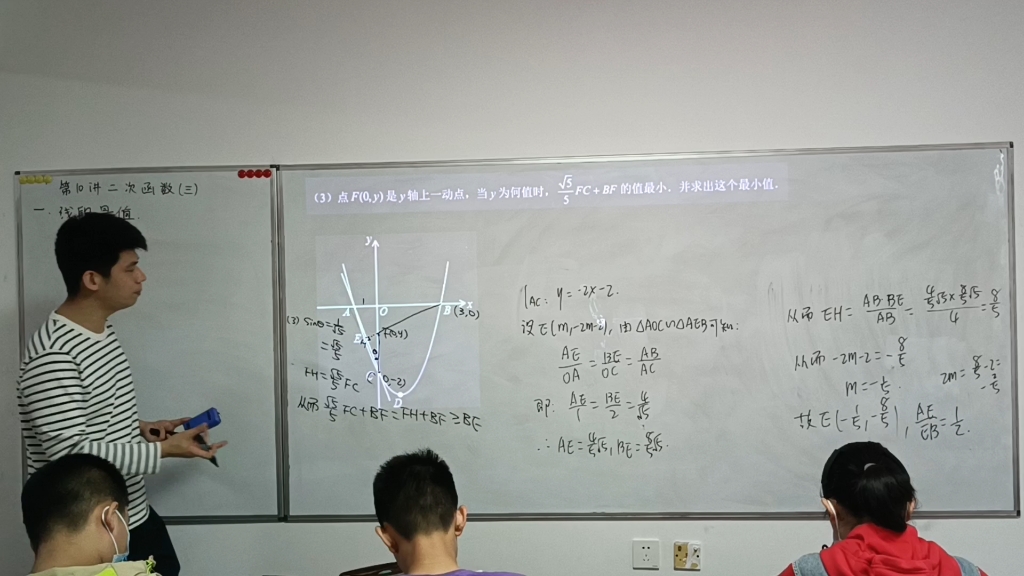 第10讲 二次函数(三)
一. 线段最值
(3) 点F(0,y)是y轴上一动点, 当y为何值时, √5/5 FC+BF的值最小. 并求出这个最小值.
y
A
O
B(3,0)
x
F(0,y)
C(0,-2)
(3) sinθ=1/√5
=√5/5
FH=√5/5 FC
从而 √5/5 FC+BF=FH+BF≥BE
l AC: y=-2x-2.
设E(m,-2m-2), 由△AOC∽△AEB可知:
AE/OA=BE/OC=AB/AC
即: AE/1=BE/2=4/√5
∴ AE=4/5√5, BE=8/5√5.
从而 EH=AB·BE/AB=4/5√5×8/5√5/4=8/5
从而 -2m-2=-8/5
m=-1/5.
2m=8/5-2
故E(-1/5,-8/5), AE/EB=1/2.